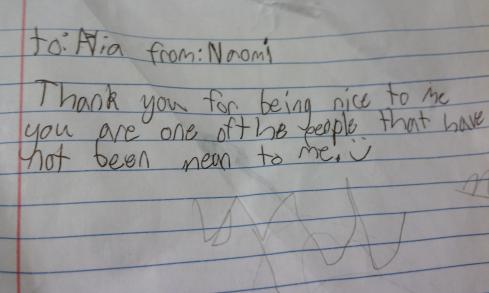 to: Nia from: Naomi
Thank you for being nice to me
you are one of the people that have
not been mean to me. :)